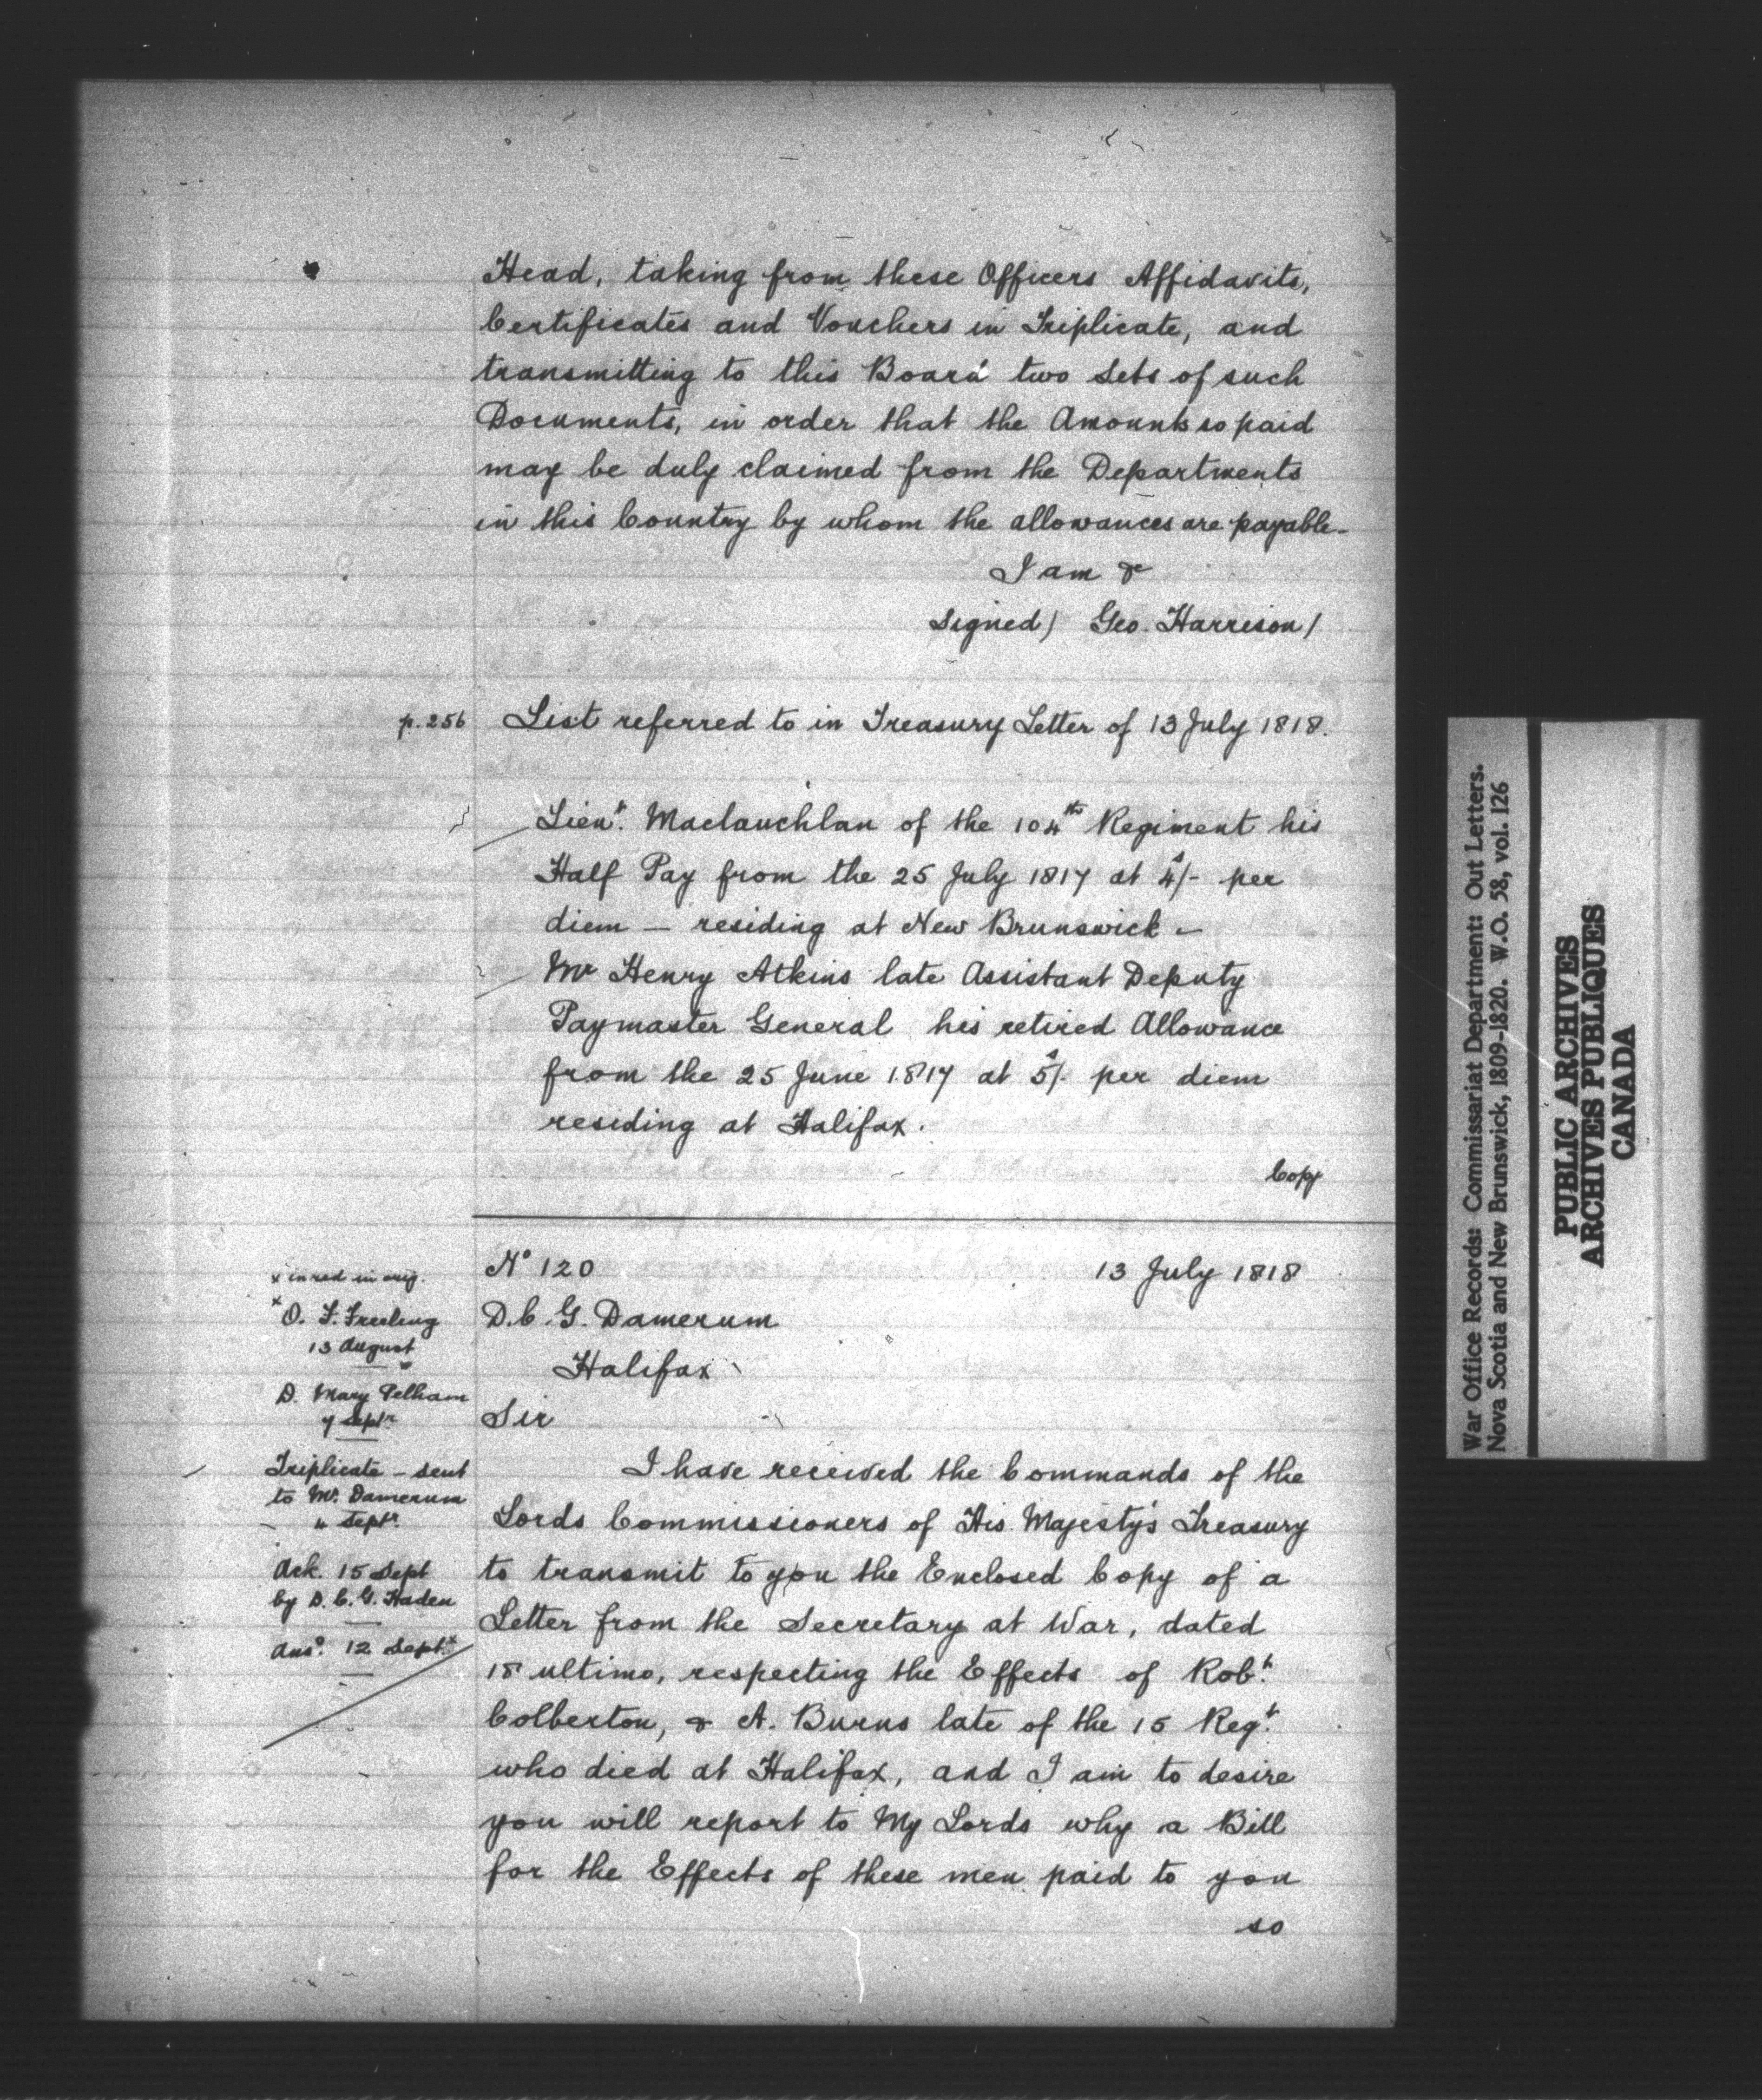 Head, taking from these Officers Affidavits,
Certificates and Vouchers in Triplicate, and
transmitting to this Board two Sets of such
Documents, in order that the Amounts so paid
may be duly claimed from the Departments
in this Country by whom the allowances are payable-
I am &
Signed) Geo. Harrison/
p. 256 List referred to in Treasury Letter of 13 July 1818.
Lieut. Maclauchlan of the 104th Regiment his
Half Pay from the 25 July 1817 at 4s/- per
diem — residing at New Brunswick -
Mr Henry Atkins late Assistant Deputy
Paymaster General his retired Allowance
from the 25 June 1817 at 5s/- per diem
residing at Halifax.
Copy
x in red in orig.
x O. F. Freeling
13 August
D. Mary Pelham
7 Septr
Triplicate - sent
to Mr. Damerum
4 Septr.
Ack. 15 Sept
by D. C. G. Haden
Ansd. 12 Septr
No 120 13 July 1818
D. C. G. Damerum
Halifax
Sir
I have received the Commands of the
Lords Commissioners of His Majesty's Treasury
to transmit to you the Enclosed Copy of a
Letter from the Secretary at War, dated
18 ultimo, respecting the Effects of Robt.
Colberton, & A. Burns late of the 15 Regt.
who died at Halifax, and I am to desire
you will report to My Lords why a Bill
for the Effects of these men paid to you
so
War Office Records: Commissariat Department: Out Letters.
Nova Scotia and New Brunswick, 1809-1820. W.O. 58, vol. 126
PUBLIC ARCHIVES
ARCHIVES PUBLIQUES
CANADA